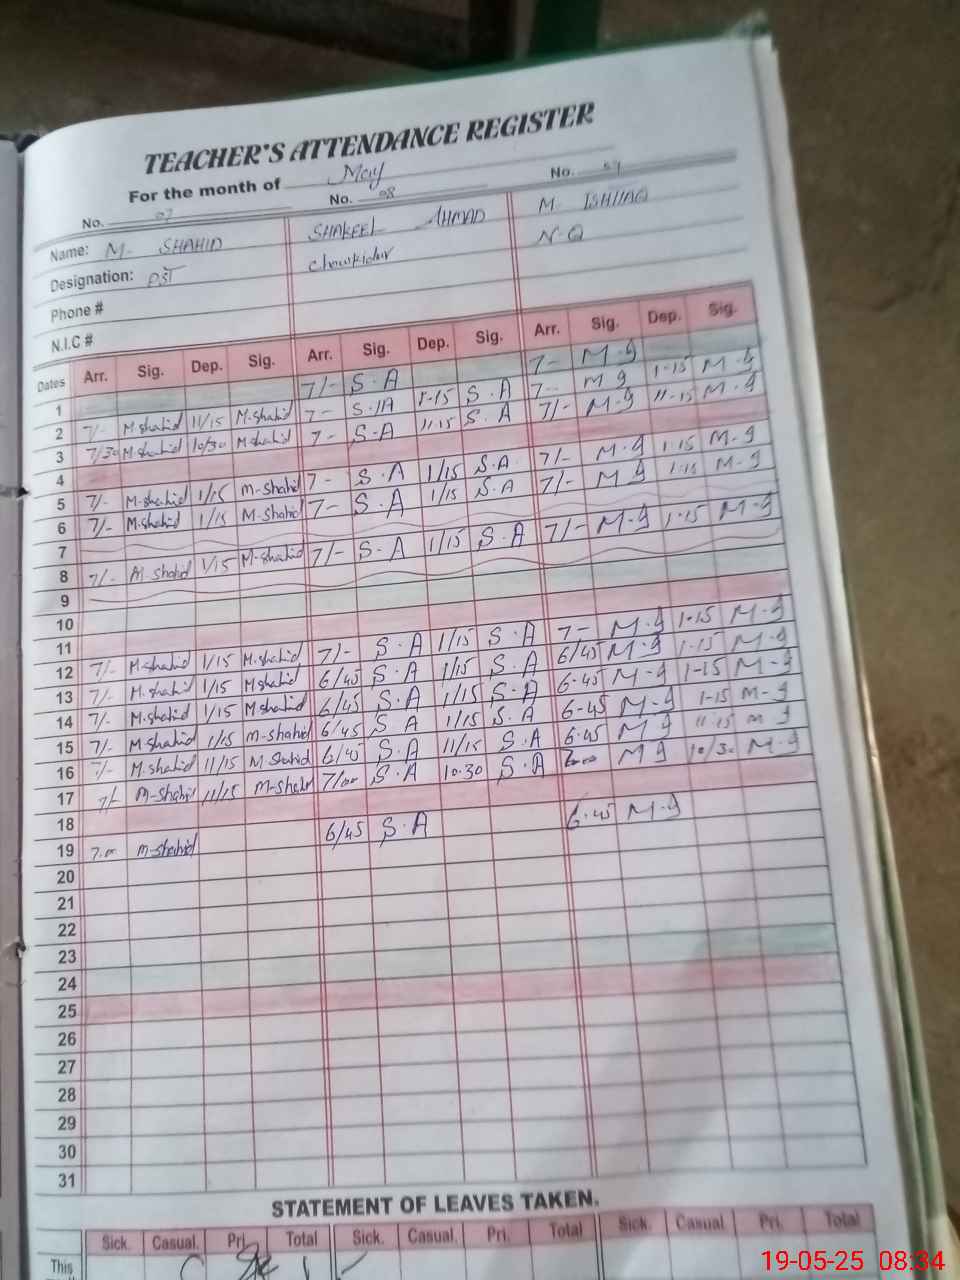 TEACHER'S ATTENDANCE REGISTER
For the month of May
No. 07 No. 08 No.
Name: M. SHAHID SHAKEEL AHMAD M. ISHHAQ
Designation: PST Chowkidar N-Q
Phone #
N.I.C #
Dates Arr. Sig. Dep. Sig. Arr. Sig. Dep. Sig. Arr. Sig. Dep. Sig.
1 7/- S.A 7- M-9
2 7/- M-shahid 11/15 M-shahid 7- S.A 1-15 S.A 7- M 9 1-15 M-9
3 7/30 M-shahid 10/30 M-shahid 7- S-A 11-15 S.A 7/- M-9 11-15 M-9
4
5 7/- M-shahid 1/15 M-shahid 7- S.A 1/15 S.A 7/- M-9 1-15 M-9
6 7/- M-shahid 1/15 M-shahid 7- S.A 1/15 S.A 7/- M 9 1-15 M-9
7
8 7/- M-shahid 1/15 M-shahid 7/- S-A 1/15 S.A 7/- M-9 1-15 M-9
9
10
11
12 7/- M-shahid 1/15 M-shahid 7/- S.A 1/15 S.A 7- M-9 1-15 M-9
13 7/- M-shahid 1/15 M-shahid 6/45 S.A 1/15 S.A 6/45 M-9 1-15 M-9
14 7/- M-shahid 1/15 M-shahid 6/45 S.A 1/15 S.A 6-45 M-9 1-15 M-9
15 7/- M-shahid 1/15 m-shahid 6/45 S A 1/15 S.A 6-45 M-9 1-15 M-9
16 7/- M-shahid 11/15 M-shahid 6/45 S.A 11/15 S.A 6-45 M 9 11-15 M 9
17 7/- M-shahid 11/15 M-shahid 7/00 S.A 10-30 S.A M 9 10/30 M-9
18
19 7.00 m-shahid 6/45 S.A 6-45 M-9
20
21
22
23
24
25
26
27
28
29
30
31
STATEMENT OF LEAVES TAKEN.
Sick. Casual. Pri. Total Sick. Casual. Pri. Total Sick. Casual. Pri. Total
This
19-05-25 08:34